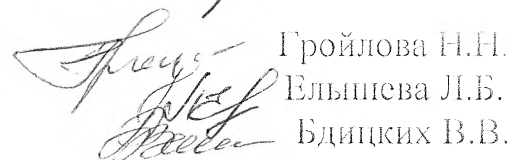 Гройлова Н.Н.
Елышева Л.Б.
Бдицких В.В.